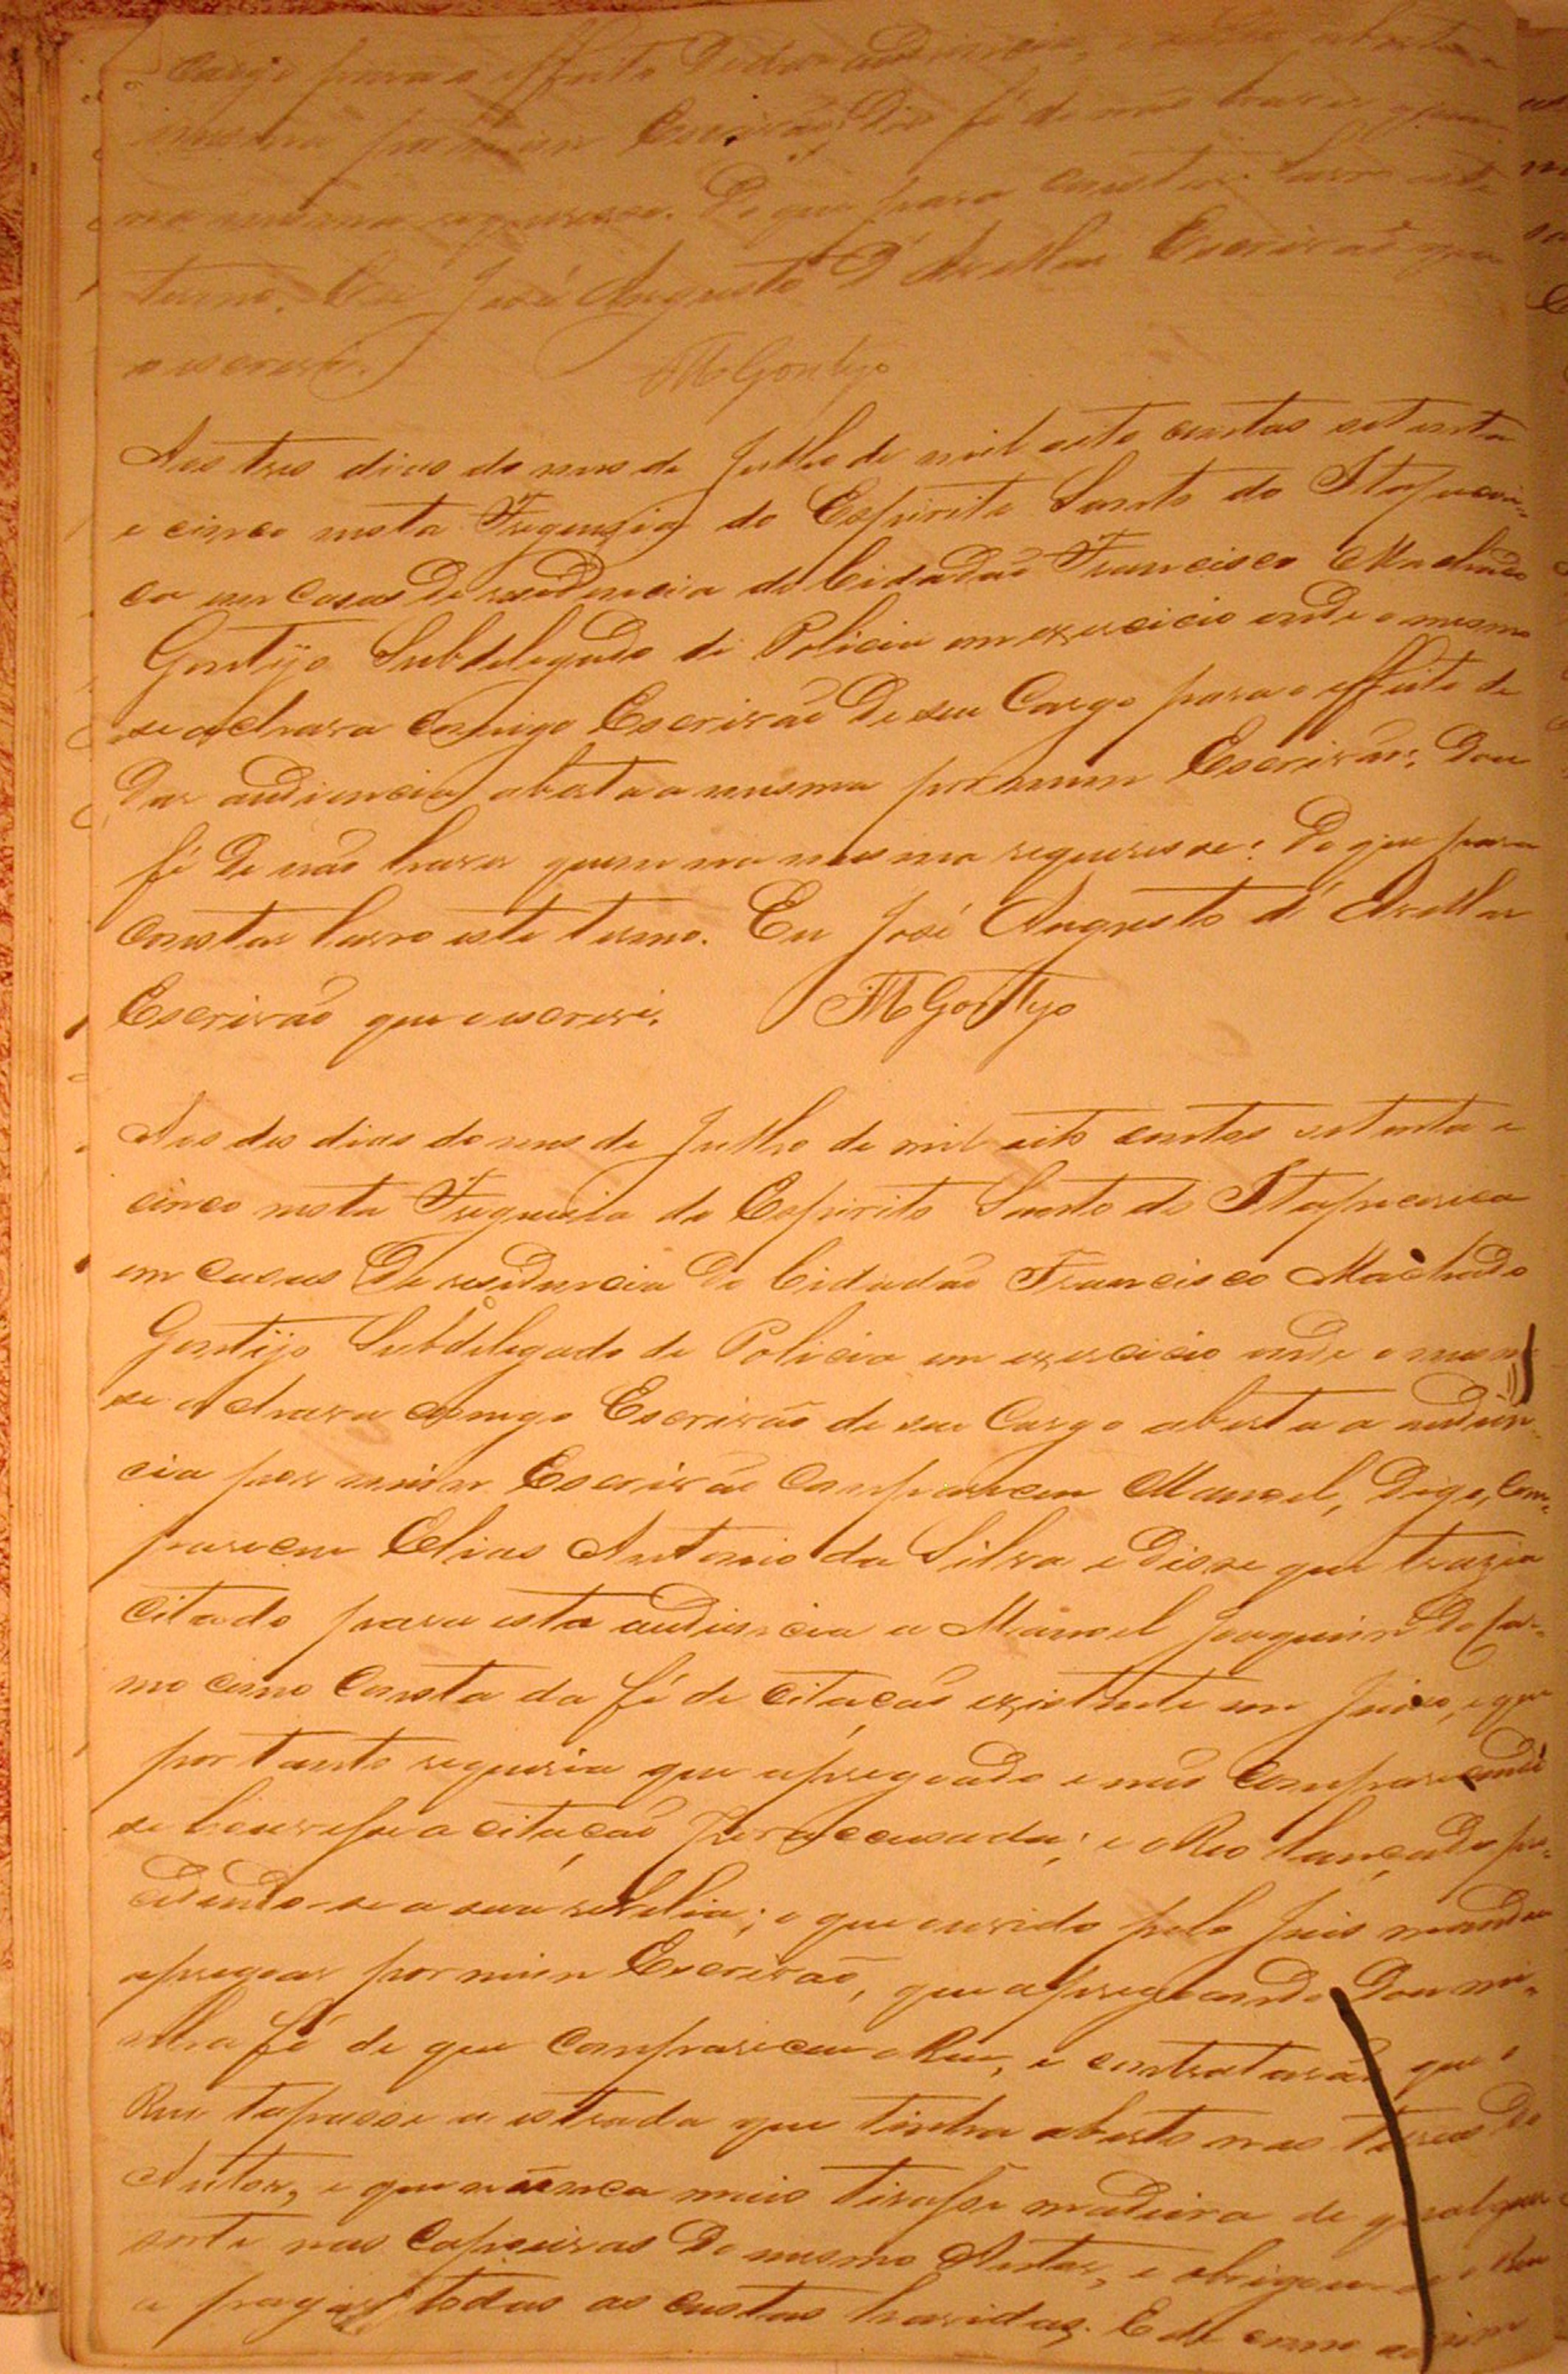 Cargo para o effeito de dar audiencia, aberta a
mesma por mim Escrivão; Dou fé de não haver quem
na mesma requeresse. Do que para constar lavro este
termo. Eu José Augusto d'Avellar Escrivão que
o escrevi. FMGontijo
Aos tres dias do mes de Julho de mil oito centos setenta
e cinco nesta Freguezia do Espirito Santo do Itapeceri-
ca em casas de residencia do Cidadão Francisco Machado
Gontijo Subdelegado de Policia em exercicio onde o mesmo
se achava comigo Escrivão de seu Cargo para o effeito de
dar audiencia aberta a mesma por mim Escrivão; Dou
fé de não haver quem na mesma requeresse: Do que para
constar lavro este termo. Eu José Augusto d'Avellar
Escrivão que o escrevi. FMGontijo
Aos des dias do mes de Julho de mil oito centos setenta e
cinco nesta Freguezia do Espirito Santo do Itapecerica
em casas de residencia do Cidadão Francisco Machado
Gontijo Subdelegado de Policia em exercicio onde o mesmo
se achava comigo Escrivão de seu Cargo aberta a audien-
cia por mim Escrivão compareceu Manoel, digo, com-
pareceu Elias Antonio da Silva e disse que trazia
citado para esta audiencia a Manoel Joaquim do Car-
mo como consta da fé de citação existente em Juiso, e que
por tanto requeria que apregoado e não comparecendo
se houvesse a citação por accusada; e o Reo lançado pro-
cedendo-se a sua revelia; o que ouvido pelo Juis mandou
apregoar por mim Escrivão, que apregoando dou mi-
nha fé de que compareceu o Reu, e contratarão que o
Reu tapasse a estrada que tinha aberto nas terras do
Autor, e que nunca mais tirasse madeira de qualquer
sorte nas capoeiras do mesmo Autor, e obrigou-se o Reu
a pagar todas as custas havidas. E de como assim